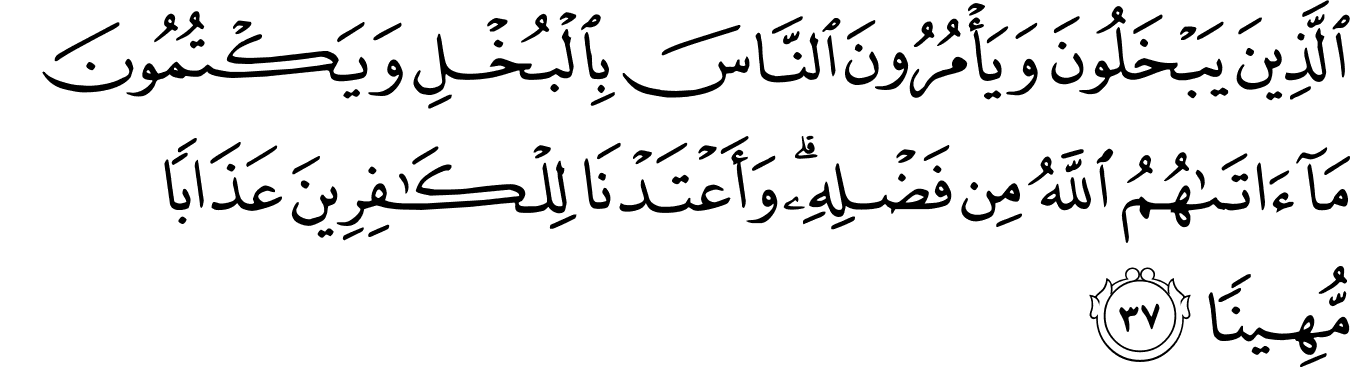 ٱلَّذِينَ يَبْخَلُونَ وَيَأْمُرُونَ ٱلنَّاسَ بِٱلْبُخْلِ وَيَكْتُمُونَ
مَآ ءَاتَىٰهُمُ ٱللَّهُ مِن فَضْلِهِۦ ۗ وَأَعْتَدْنَا لِلْكَـٰفِرِينَ عَذَابًا
مُّهِينًا ٣٧